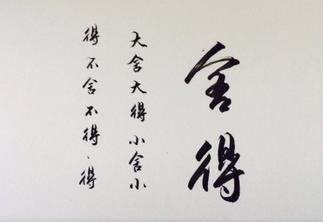 舍得
大舍大得小舍小
得不舍不得·得